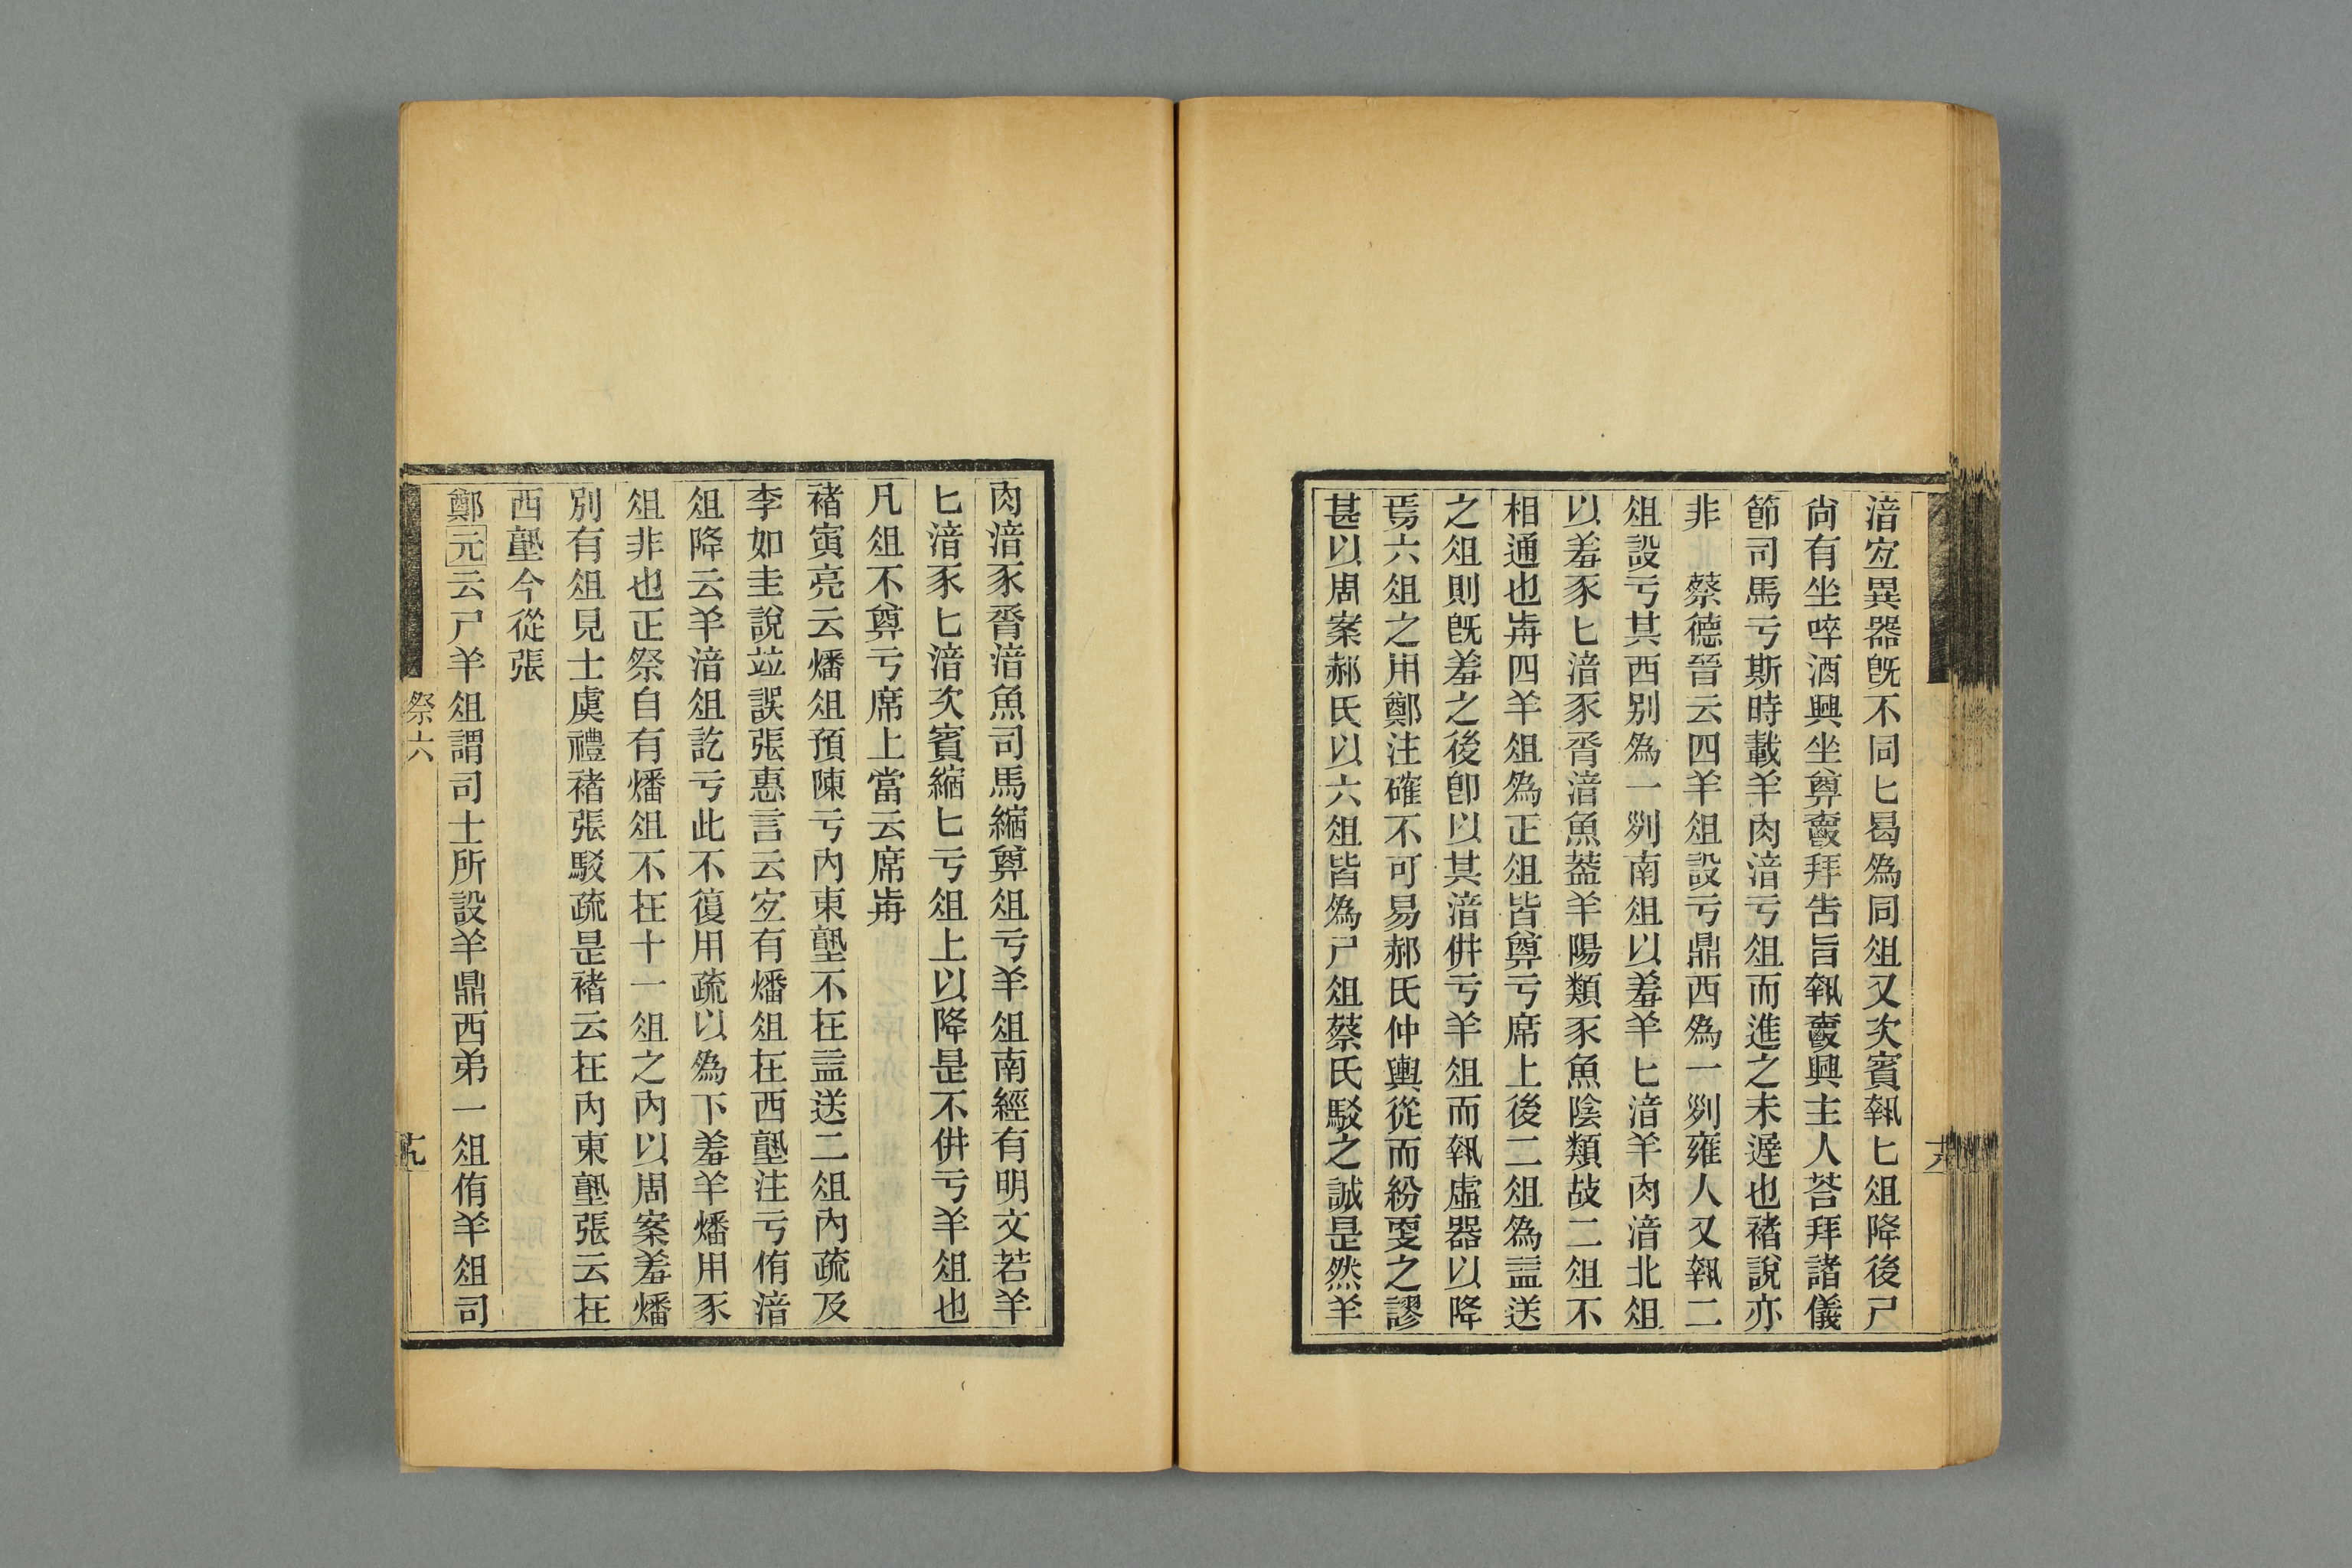 湆宐異器旣不同匕曷爲同俎又次賓執匕俎降後尸
尙有坐啐酒興坐奠爵拜告旨執爵興主人荅拜諸儀
節司馬亏斯時載羊肉湆亏俎而進之未遲也褚說亦
非　蔡德晉云四羊俎設亏鼎西爲一列雍人又執二
俎設亏其西別爲一列南俎以羞羊匕湆羊肉湆北俎
以羞豕匕湆豕脀湆魚葢羊陽類豕魚陰類故二俎不
相通也歬四羊俎爲正俎皆奠亏席上後二俎爲益送
之俎則旣羞之後卽以其湆倂亏羊俎而執虛器以降
焉六俎之用鄭注確不可易郝氏仲輿從而紛更之謬
甚以周案郝氏以六俎皆爲尸俎蔡氏駁之誠是然羊
肉湆豕脀湆魚司馬縮奠俎亏羊俎南經有明文若羊
匕湆豕匕湆次賓縮匕亏俎上以降是不倂亏羊俎也
凡俎不奠亏席上當云席歬
褚寅亮云燔俎預陳亏內東塾不在益送二俎內疏及
李如圭說竝誤張惠言云宐有燔俎在西塾注亏侑湆
俎降云羊湆俎訖亏此不復用疏以爲下羞羊燔用豕
俎非也正祭自有燔俎不在十一俎之內以周案羞燔
別有俎見士虞禮褚張駁疏是褚云在內東塾張云在
西塾今從張
鄭元云尸羊俎謂司士所設羊鼎西弟一俎侑羊俎司
祭六
十九